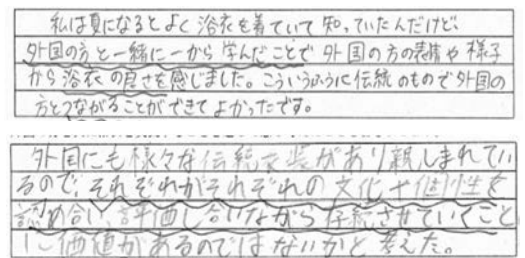 私は夏になるとよく浴衣を着ていて知っていたんだけど、
外国の方と一緒に一から学んだことで外国の方の表情や様子
から浴衣の良さを感じました。こういうふうに伝統のもので外国の
方とつながることができてよかったです。
外国にも様々な伝統衣装があり親しまれてい
るので、それぞれがそれぞれの文化や個性を
認め合い、評価し合いながら存続させていくこと
に価値があるのではないかと考えた。